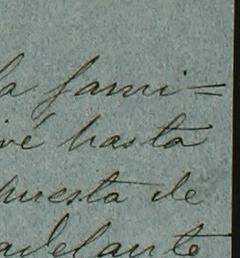 la fami=
ivé hasta
puesta de
adelante